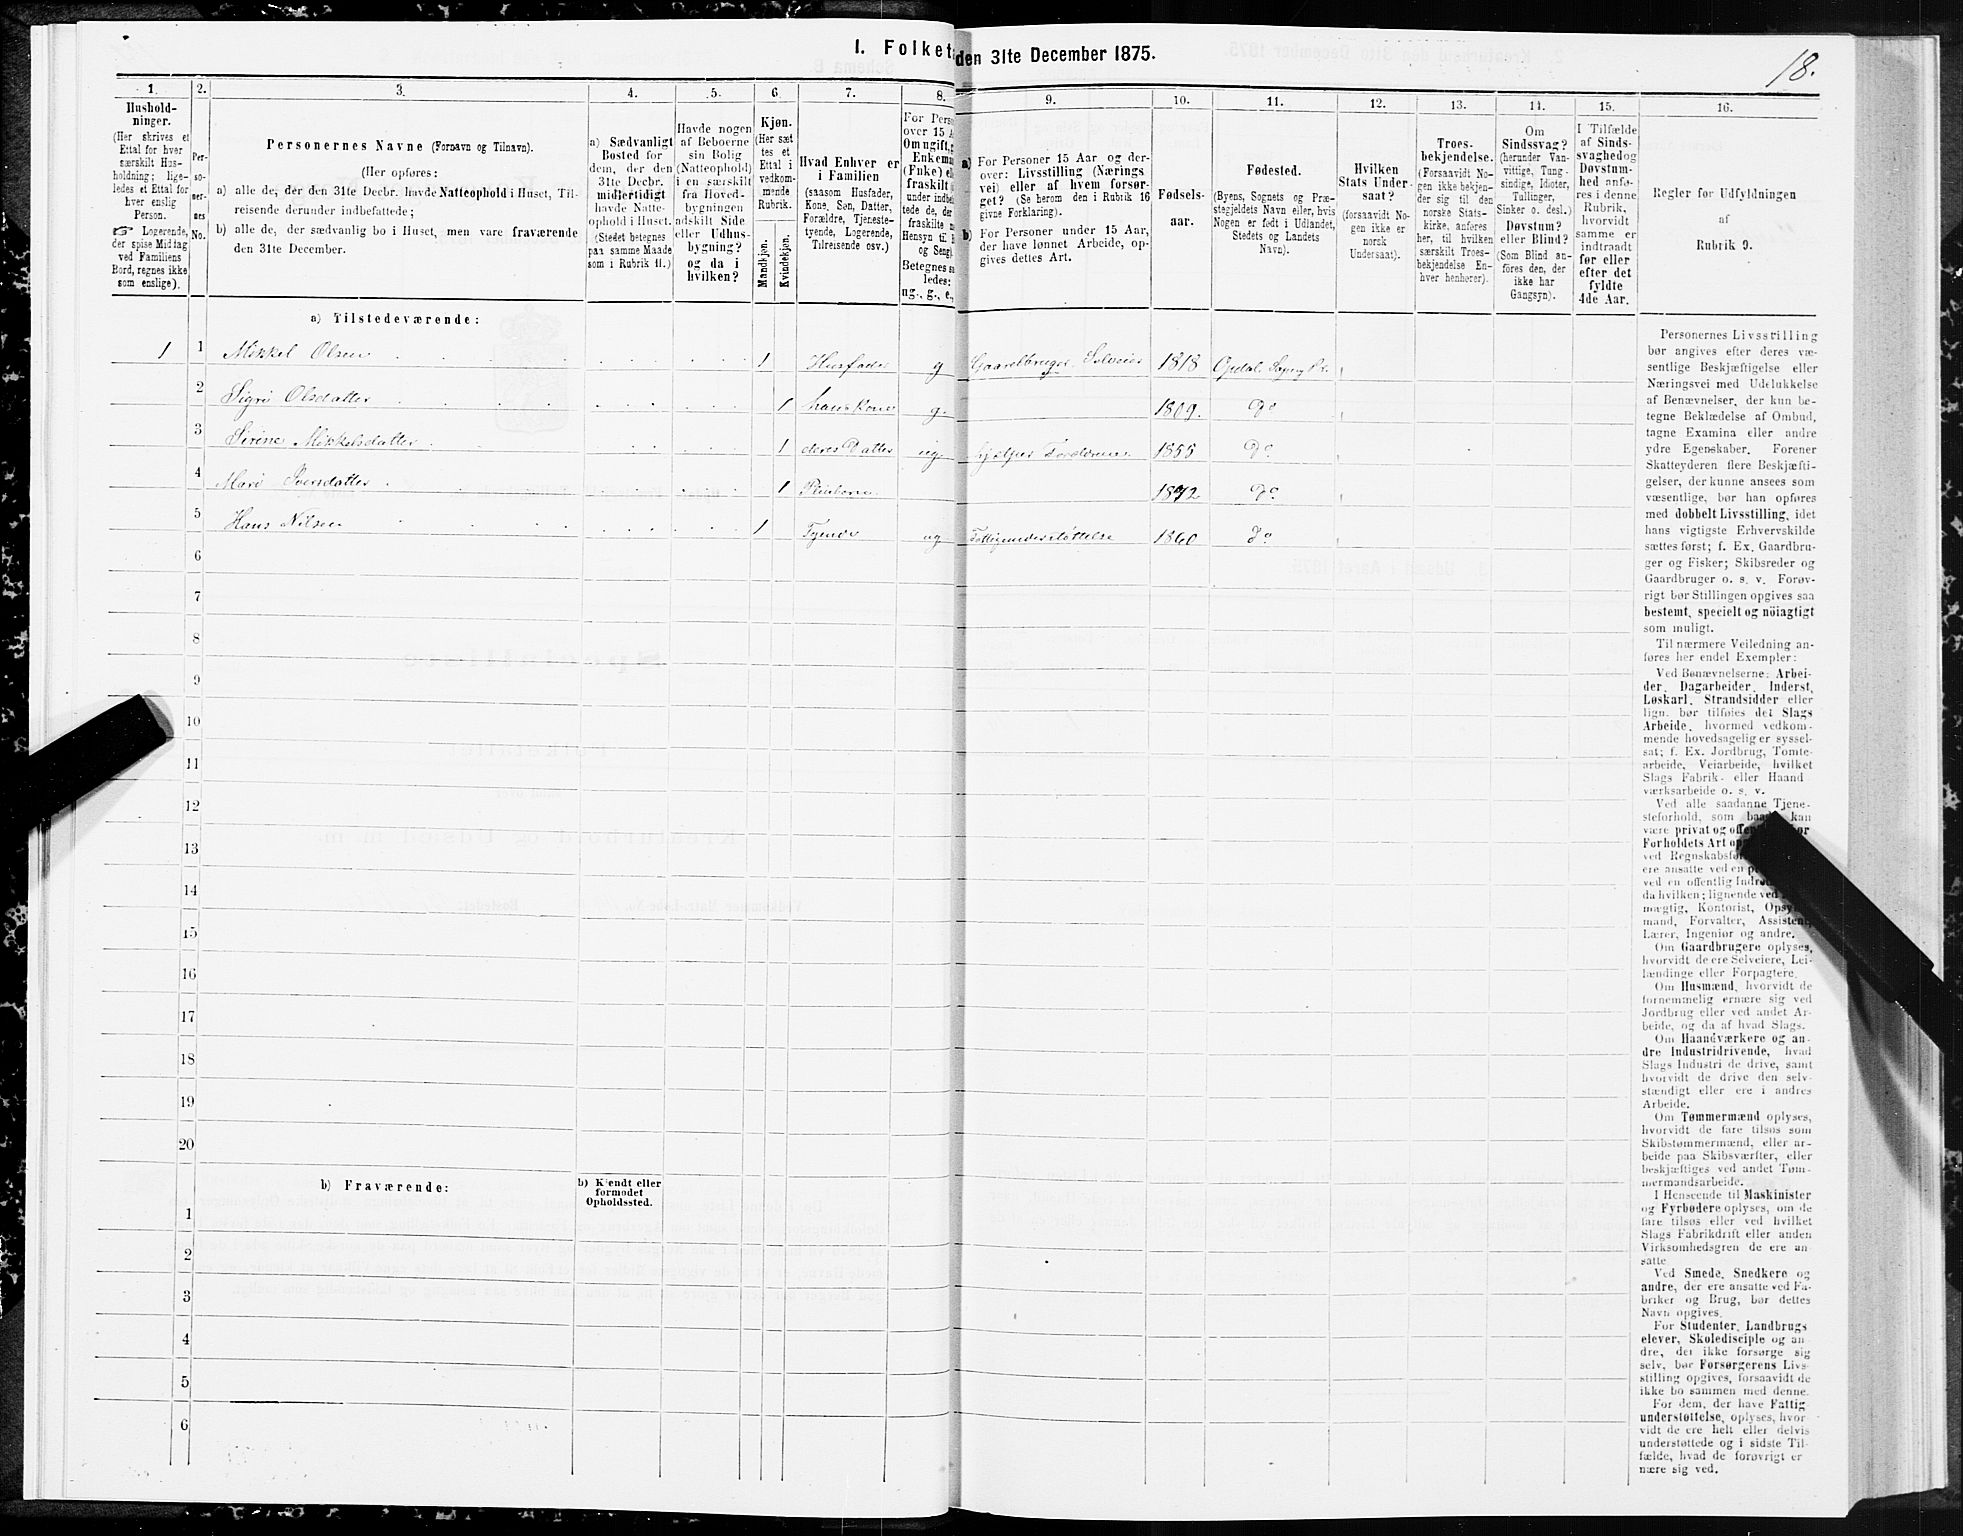 I. Folket
den 31te December 1875.
18.
1.
2.
3.
4.
5.
6.
7.
8.
9.
10.
11.
12.
13.
14.
15.
16.
Hushold-
ninger.
(Her skrives et
Ettal for hver
særskilt Hus-
holdning; lige-
ledes et Ettal for
hver enslig
Person.
☞ Logerende,
der spise Middag
ved Familiens
Bord, regnes ikke
som enslige).
Per-
so-
ner-
nes
No.
Personernes Navne (Fornavn og Tilnavn).
(Her opføres:
a) alle de, der den 31te Decbr. havde Natteophold i Huset, Til-
reisende derunder indbefattede;
b) alle de, der sædvanlig bo i Huset, men vare fraværende
den 31te December.
a) Sædvanligt
Bosted for
dem, der den
31te Decbr.
midlertidigt
havde Natte-
ophold i Huset.
(Stedet betegnes
paa samme Maade
som i Rubrik 11.)
Havde nogen
af Beboerne
sin Bolig
(Natteophold)
i en særskilt
fra Hoved-
bygningen
adskilt Side
eller Udhus-
bygning?
og da i
hvilken?
Kjøn.
(Her sæt
tes et
Ettal i
vedkom-
mende
Rubrik.
Mandkjøn.
Kvindekjøn.
Hvad Enhver er
i Familien
(saasom Husfader,
Kone, Søn, Datter,
Forældre, Tjeneste-
tyende, Logerende,
Tilreisende osv.)
For Perso
over 15 A
Om ugift, g
Enkema
(Enke) el
fraskilt
under indbe
tede de, der
fraskilte
Hensyn til
og Seng).
Betegnes s
ledes:
ug., g., e.,
a) For Personer 15 Aar og der-
over: Livsstilling (Nærings
vei) eller af hvem forsør-
get? (Se herom den i Rubrik 16
givne Forklaring).
b) For Personer under 15 Aar,
der have lønnet Arbeide, op-
gives dettes Art.
Fødsels-
aar.
Fødested.
(Byens, Sognets og Præ-
stegjeldets Navn eller, hvis
Nogen er født i Udlandet,
Stedets og Landets
Navn).
Hvilken
Stats Under-
saat?
(forsaavidt No-
gen ikke er
norsk
Undersaat).
Troes-
bekjendelse.
(Forsaavidt No-
gen ikke bekjen-
der sig til den
norske Stats-
kirke, anføres
her, til hvilken
særskilt Troes-
bekjendelse En-
hver henhører).
Om
Sindssvag?
(herunder Van-
vittige, Tung-
sindige, Idioter,
Tullinger,
Sinker o. desl.)
Døvstum?
eller Blind?
(Som Blind an-
føres den, der
ikke har
Gangsyn).
I Tilfælde
af Sinds-
svaghed og
Døvstum-
hed anfø-
res i denne
Rubrik,
hvorvidt
samme er
indtraadt
før eller
efter det
fyldte
4de Aar.
Regler for Udfyldningen
af
Rubrik 9.
a) Tilstedeværende:
1 1 Mikkel Olsen 1 Husfader g Gaardbruger Selveier 1818 Opdal Sogn
2 Sigri Olsdatter 1 hans Kone g. 1809. Do
3 Sirine Mikkelsdatter 1 deres Datter ug. hjelper Forældrene 1855 Do
4 Mari Iversdatter 1 Pleiebarn 1872 Do
5 Hans Nilsen 1 Tyende ug Fattigunderstøttelse 1860 Do
6
7
8
9
10
11
12
13
14
15
16
17
18
19
20
b) Fraværende:
b) Kjendt eller
formodet
Opholdssted.
1
2
3
4
5
6
Personernes Livsstilling
bør angives efter deres væ-
sentlige Beskjæftigelse eller
Næringsvei med Udelukkelse
af Benævnelser, der kun be-
tegne Beklædelse af Ombud,
tagne Examina eller andre
ydre Egenskaber. Forener
Skatteyderen flere Beskjæfti-
gelser, der kunne ansees som
væsentlige, bør han opføres
med dobbelt Livsstilling, idet
hans vigtigste Erhvervskilde
sættes først; f. Ex. Gaardbru-
ger og Fisker; Skibsreder og
Gaardbruger o. s. v. Forøv-
rigt bør Stillingen opgives saa
bestemt, specielt og nöiagtigt
som muligt.
Til nærmere Veiledning an-
føres her endel Exempler:
Ved Benævnelserne: Arbei-
der, Dagarbeider, Inderst,
Løskarl, Strandsidder eller
lign. bør tilføies det Slags
Arbeide, hvormed vedkom-
mende hovedsagelig er syssel-
sat; f. Ex. Jordbrug, Tomte-
arbeide, Veiarbeide, hvilket
Slags Fabrik- eller Haand
værksarbeide o. s. v.
Ved alle saadanne Tjene-
steforhold, som kan
være privat og
Forholdets Art
ved Regnskabsfø
ere ansatte ved en
ved en offentlig Indr
da hvilken; lignende ved
mægtig, Kontorist, Opsy
mand, Forvalter, Assistent,
Lærer, Ingeniør og andre.
Om Gaardbrugere oplyses,
hvorvidt de ere Selveiere, Lei-
lændinge eller Forpagtere.
Om Husmænd, hvorvidt de
fornemmelig ernære sig ved
Jordbrug eller ved andet Ar-
beide, og da af hvad Slags.
Om Haandværkere og an-
dre Industridrivende, hvad
Slags Industri de drive, samt
hvorvidt de drive den selv-
stændigt eller ere i andres
Arbeide.
Om Tømmermænd oplyses,
hvorvidt de fare tilsøs som
Skibstømmermænd, eller ar-
beide paa Skibsværfter, eller
beskjæftiges ved andet Tøm-
mermandsarbeide.
I Henseende til Maskinister
og Fyrbødere oplyses, om de
fare tilsøs eller ved hvilket
Slags Fabrikdrift eller anden
Virksomhedsgren de ere an-
satte
Ved Smede, Snedkere og
andre, der ere ansatte ved Fa-
briker og Brug, bør dettes
Navn opgives.
For Studenter, Landbrugs
elever, Skoledisciple og an-
dre, der ikke forsørge sig
selv, bør Forsørgerens Livs-
stilling opgives, forsaavidt de
ikke bo sammen med denne.
For dem, der have Fattig
understøttelse, oplyses, hvor-
vidt de ere helt eller delvis
understøttede og i sidste Til-
fælde, hvad de forøvrigt er
nære sig ved.